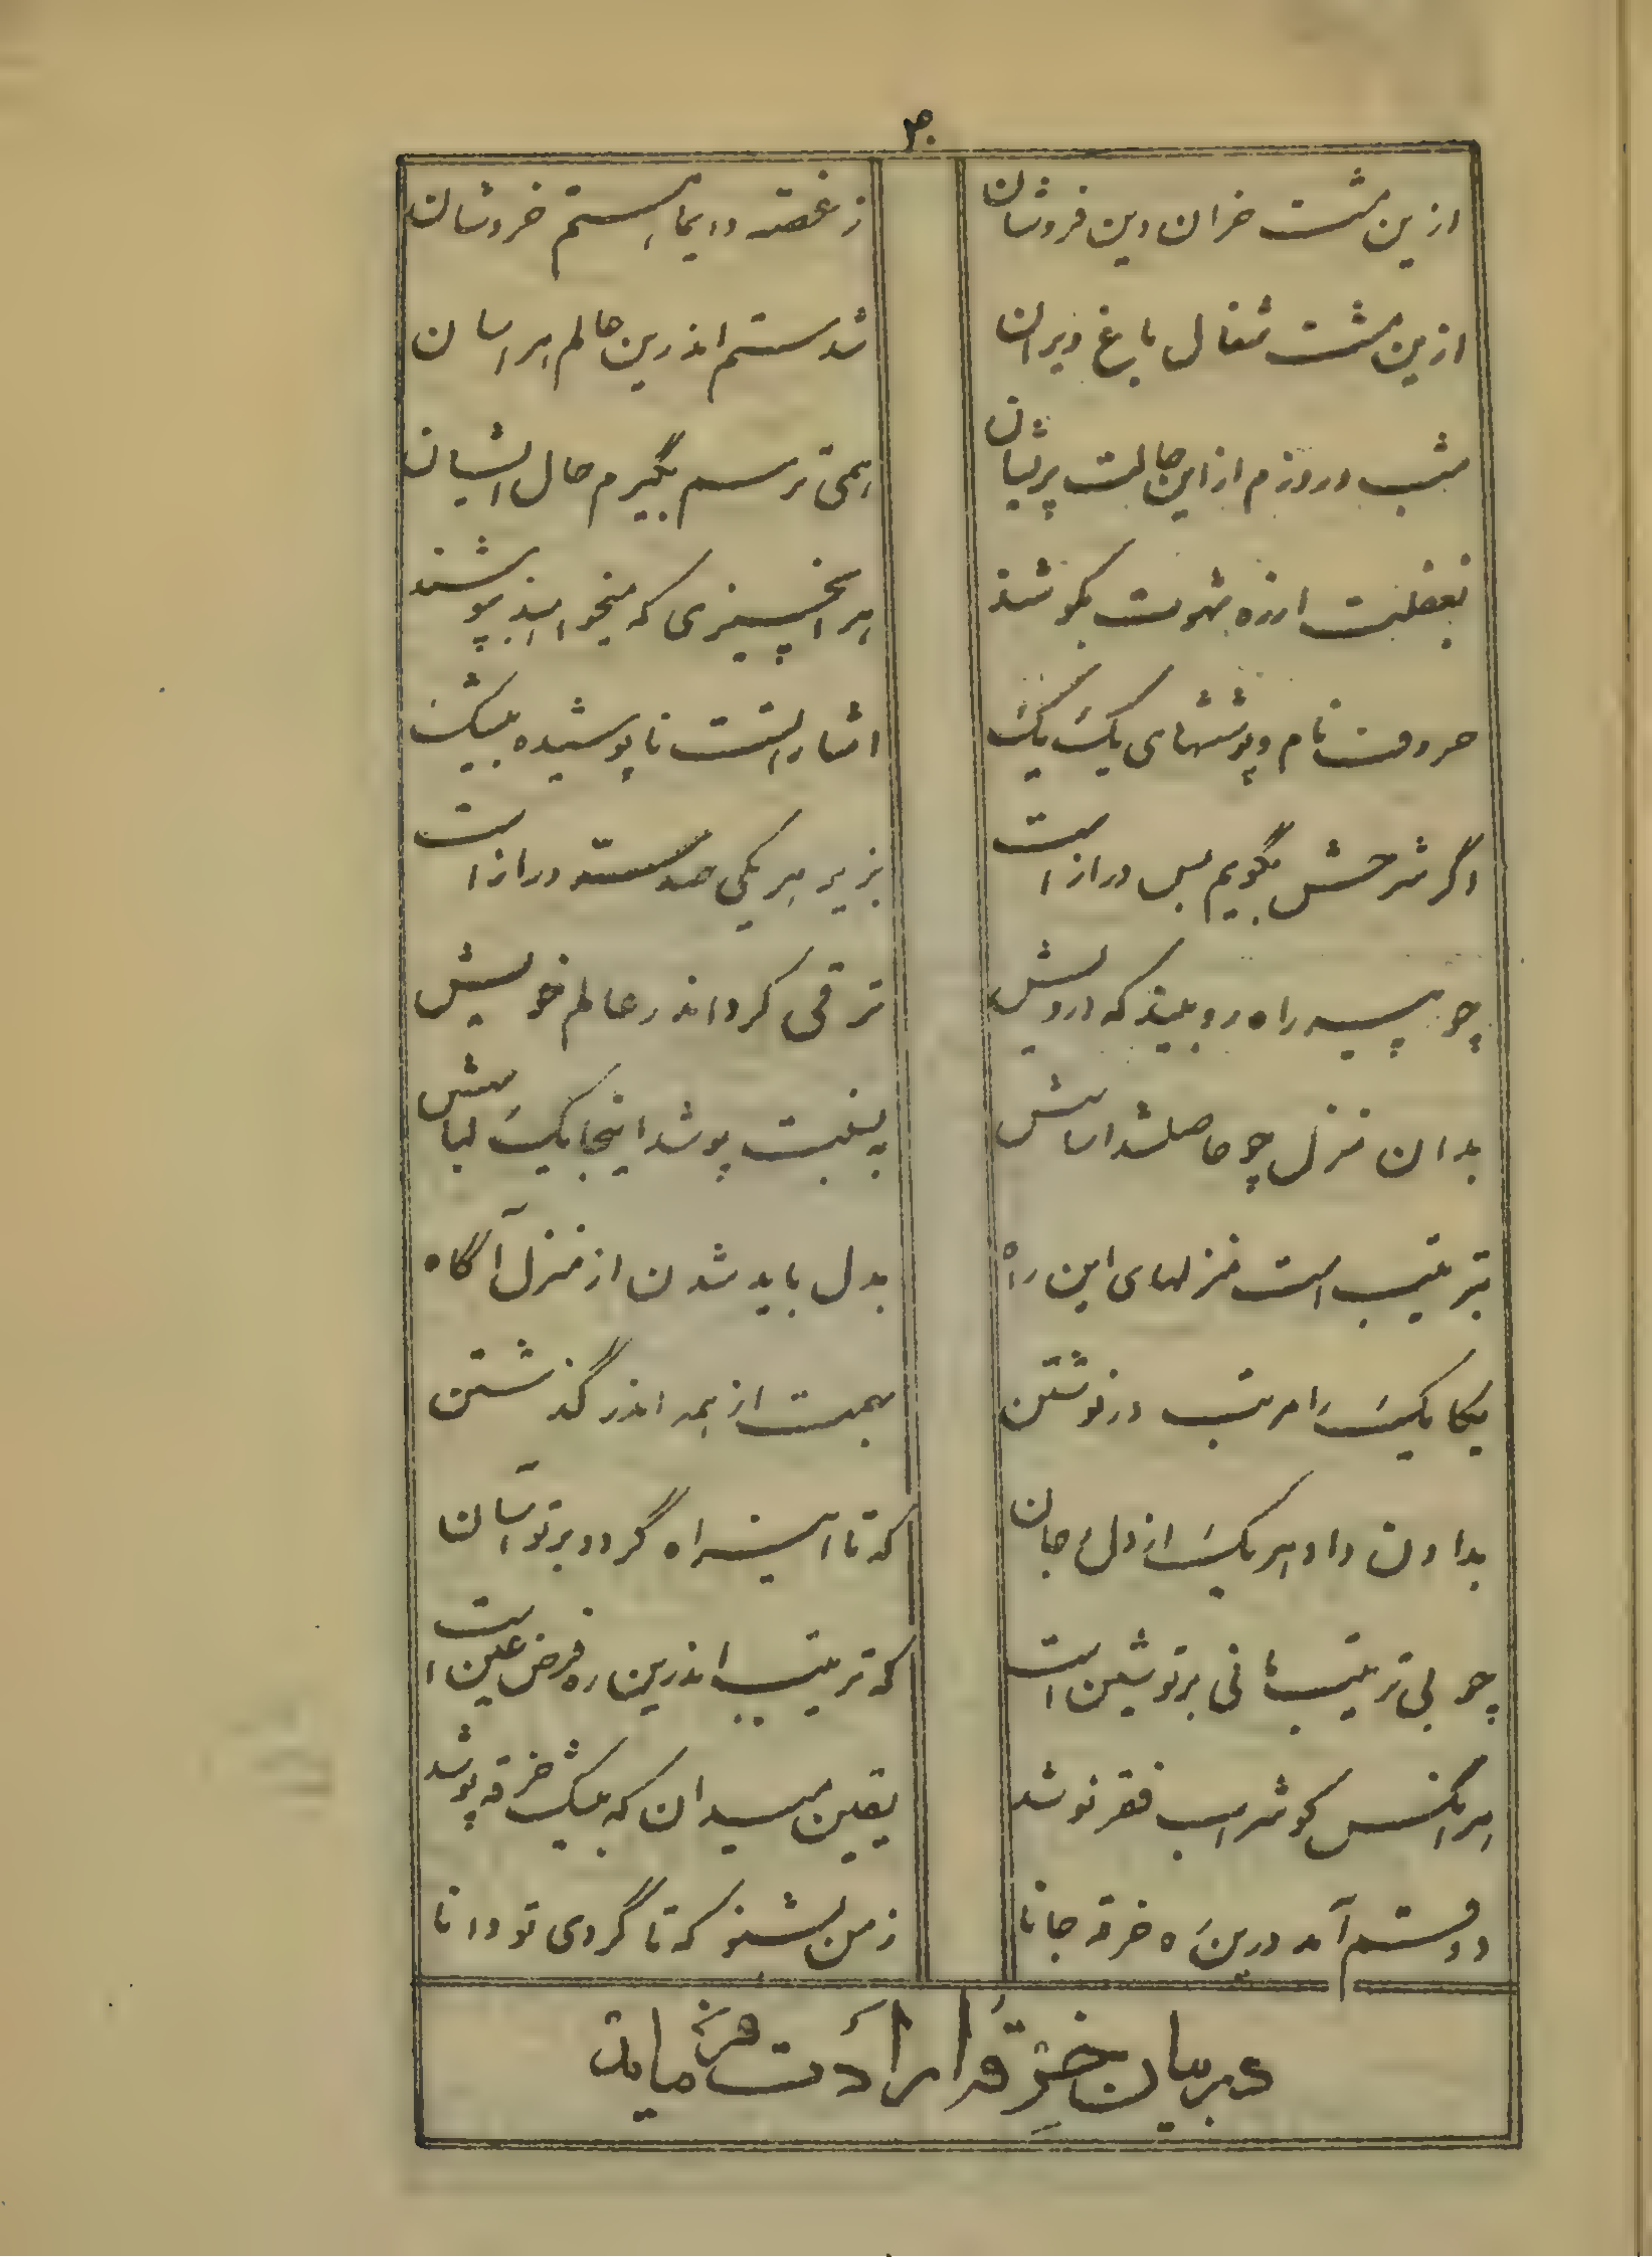 ۳۰
ازین مشت خران دین فروشان
ز غصه دایما هستم خروشان
ازین مشت شغال باغ ویران
شدستم اندرین عالم هراسان
شب و روزم از این حالت پریشان
همی ترسم بگیرم حال ایشان
بغفلت شهوت بکوشند
هر انچیزی که میخواهند بپوشند
حروفت نام و پوششهای یک یک
اشاراتست نا پوشیده بیشک
اگر شرحش بگویم بس دراز است
بزیر هر یکی صد دراز است
چو پیر راه رو بیند که درویش
ترقی کرد اندر عالم خویش
بدان منزل چو حاصلشد اساسش
بپوشد اینجا یک لباسش
بترتیب است منزلهای این راه
بدل باید شدن از منزل آگاه
یکایک را مرتب در نوشتن
بهمت از همه اندر گذشتن
بدادن داد هر یک از دل و جان
که تا این راه گردد بر تو آسان
چو بی ترتیب مانی بر تو شین است
که ترتیب اندرین ره فرض عین است
هر انکس کو شراب فقر نوشد
یقین میدان که بیشک خرقه پوشد
دو قسم آمد درین ره خرقه جانا
ز من بشنو که تا گردی تو دانا
در بیان خرقه ارادت فرماید